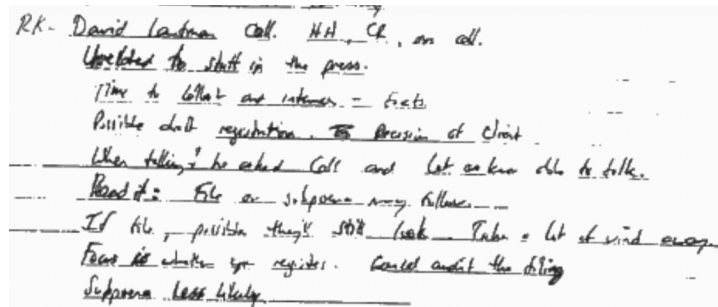 RK- David Laufman Call. HH, CR, on call.
Unrelated to stuff in the press.
Time to collect and interview - facts
Possible draft registration. Decision of client.
When talking he asked call and let us know able to talk.
Read it: File or subpoena may follow.
If file, possible they'll still look Takes a lot of wind away
Focus is whether you register. Could audit the filing
Subpoena less likely